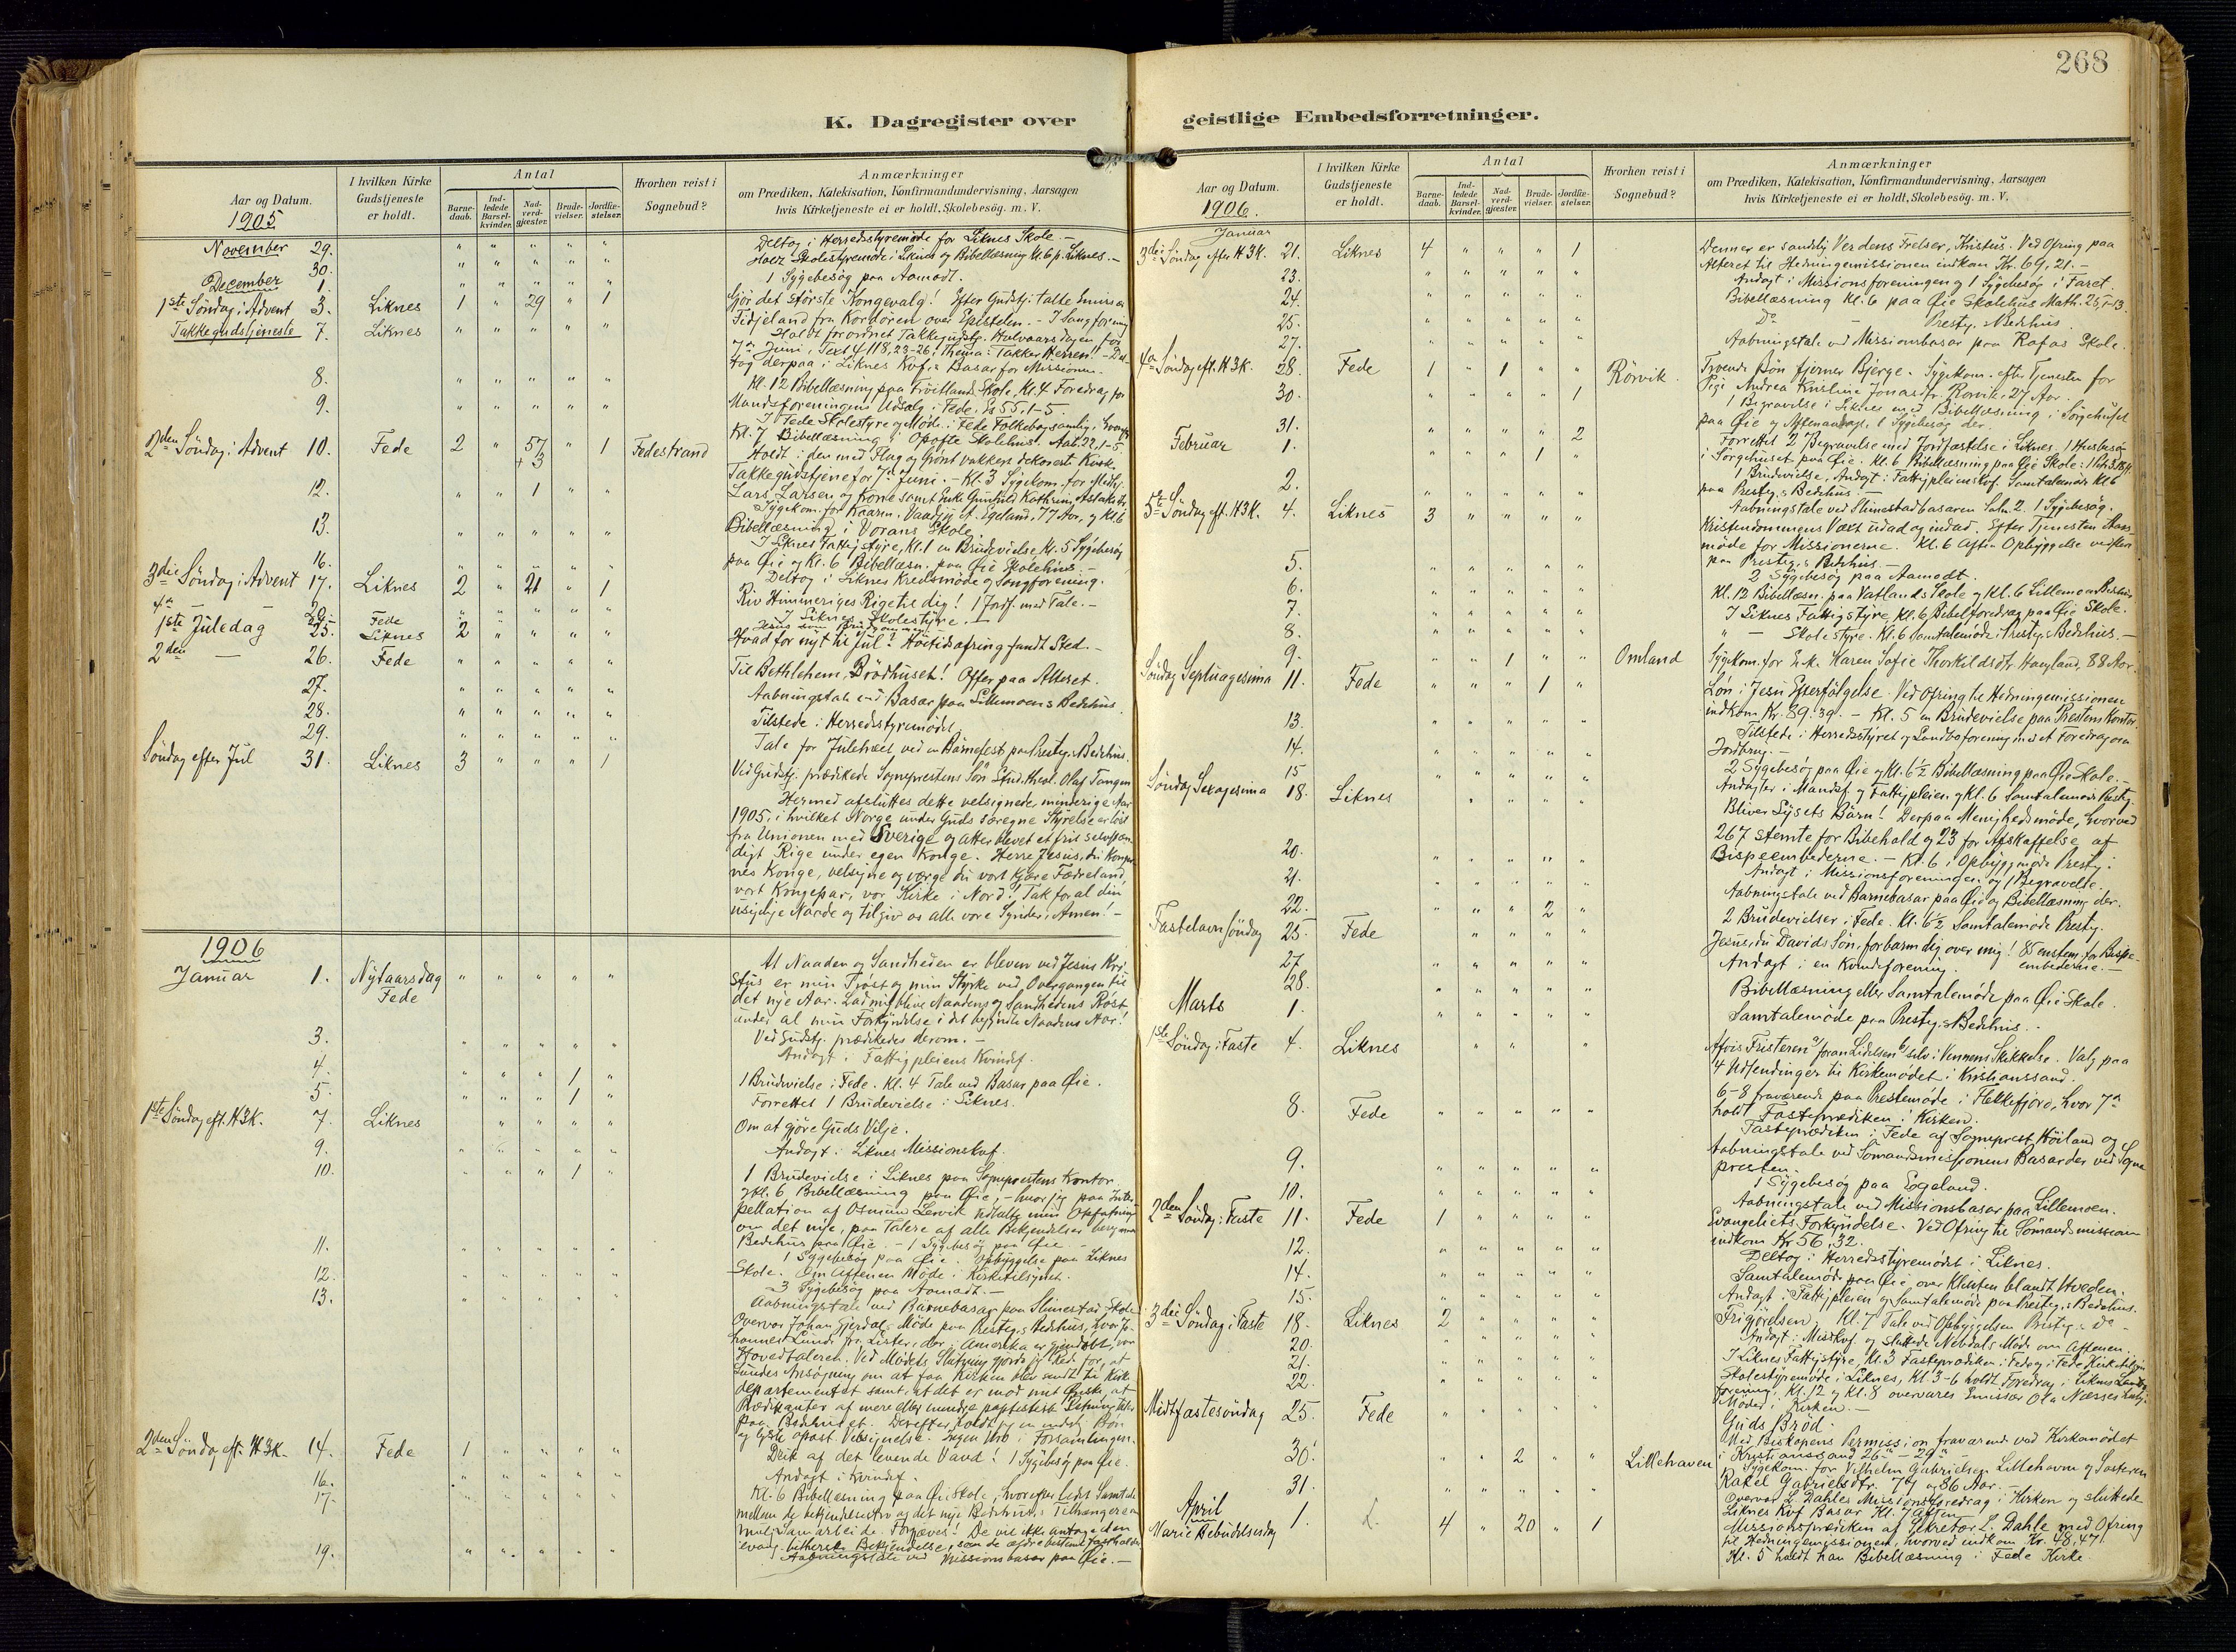 268
K. Dagregister over geistlige Embedsforretninger.
Aar og Datum.
1905
I hvilken Kirke Gudstjeneste er holdt.
Antal
Barnedaab.
Indledede Barselkvinder.
Nadverdgjæster.
Brudevielser.
Jordfæstelser.
Hvorhen reist i Sognebud?
Anmærkninger
om Prædiken, Katekisation, Konfirmandundervisning, Aarsagen
hvis Kirketjeneste ei er holdt, Skolebesög. m. V.
November 29. " " " " " Deltog i Herredsstyremøde for Liknes Skole. -
30. " " " " " Skolestyremøde i Liknes og Bibellæsning Kl. 6 p. Liknes. -
December 1. " " " " " 1 Sygebesøg paa Aamodt.
1ste Søndag i Advent 3. Liknes 1 " 29 " 1 Gjør det største Kongevalg! Efter Gudstj. talte
Fidjeland fra Kordøren over Epistelen. -
Takkegudstjeneste 7. Liknes " " " " " Holdt forordnet Takkegudstj. Halvaarsdagen for
7de Juni, Thema: Takker Herren!
derpaa i Liknes Kvf.s Basar for Missionen.
8. " " " " " Kl. 12 Bibellæsning paa Skole, Kl. 4 Foredrag for
9. " " " " " Mandsforeningens Udsalg i Fede. Es 55, 1-5.
2den Søndag i Advent 10. Fede 2 " 57 + 3 " 1 Fedestrand
Kl. 7 Bibellæsning i Opofte Skolehus.
Holdt i den med Flag og Grønt vakkert dekorerte Kirke
Takkegudstjeneste for 7de Juni. - Kl. 3 Sygekom. for
Lars Larsen og Kone samt Enke Gunhild Kathrine
12. " " 1 " " Sygekom. for Egeland, 77 Aar, og Kl. 6
13. " " " " " Bibellæsning i Vorans Skole
I Liknes Fattigstyre, Kl. 1 en Brudevielse, Kl. 5 Sygebesøg
paa Øie og Kl. 6 Bibellæsn. paa Øie Skolehus. -
16. " " " " " Deltog i Liknes Kredsmøde og Sangforening.
3die Søndag i Advent 17. Liknes 2 " 21 " 1 Riv Himmeriges Rige til dig! 1 Jordf. med Tale. -
Fede " " " " " I Liknes Skolestyre.
1ste Juledag 25. Liknes 2 " " " " Hvad for nyt til Jul? Høitidsofring fandt Sted. -
2den — 26. Fede " " " " " Til Bethlehem, Brødhuset! Offer paa Alteret.
27. " " " " " Aabningstale ved Basar paa Lillemoens Bedehus.
28. " " " " " Tilstede i Herredsstyremødet.
29. " " " " " Tale for Juletræet ved en Barnefest paa Prestg.s Bedehus.
Søndag efter Jul 31. Liknes 3 " " " 1 Ved Gudstj. prædikede Sogneprestens Søn Stud. theol. Olaf Tangen
Hermed afsluttes dette velsignede, minderige Aar
1905, i hvilket Norge under Guds særegne Styrelse er løst
fra Unionen med Sverige og atter blevet et frit selvstæn
digt Rige under egen Konge. Herre Jesus, du Konger
nes Konge, velsigne og værge du vort kjære Fædreland,
vort Kongepar, vor Kirke i Nord! Tak for al din
usigelige Naade og tilgiv os alle vore Synder, Amen! -
1906
Januar 1. Nytaarsdag Fede " " " " " At Naaden og Sandheden er bleven ved Jesus Kri
stus er min Trøst og min Styrke ved Overgangen til
det nye Aar. Lad mig blive Naadens og Sandhedens Røst
under al min Forkyndelse i det begyndte Naadens Aar!
Ved Gudstj. prædikedes derom. -
3. " " " " " Andagt i Fattigpleiens Kvindef.
4. " " " 1 " 1 Brudevielse i Fede. Kl. 4 Tale ved Basar paa Øie.
5. " " " 1 " Forrettet 1 Brudevielse i Liknes.
1ste Søndag eft. H3K. 7. Liknes " " " " Om at gjøre Guds Vilje.
9. " " " " " Andagt i Liknes Missionskvf.
10. " " " 1 " 1 Brudevielse i Liknes paa Sogneprestens Kontor
og Kl. 6 Bibellæsning paa Øie, - hvor jeg paa Inter
pellation af Osmund Lervik udtalte min Opfatning
om det nye, paa Talere af alle Bekjendelser
Bedehus paa Øie. - 1 Sygebesøg paa Øie -
11. " " " " " 1 Sygebesøg paa Øie. Opbyggelse paa Liknes
Skole. Om Aftenen Møde i Kirketilsynet.
12. " " " " " 3 Sygebesøg paa Aamodt. -
13. " " " " " Aabningstale ved Barnebasar paa Slimestad Skole
Overvar Johan Gjerdals Møde paa Prestg.s Bedehus, hvor Jo
hannes Lunde fra Lister, der i Amerika er gjendøbt, var
Hovedtaleren. Ved Mødets Slutning gjorde jeg Rede for, at
Lundes Ansøgning om at faa Kirken blev sendt til Kirke
departementet samt, at det er mod mit Ønske, at
Prædikanter af mere eller mindre baptistisk Retning taler
paa Bedehuset. Derefter holdt jeg en Bøn
og lyste apost. Velsignelse. Ingen Uro i Forsamlingen.
2den Søndag eft. H3K. 14. Fede 1 " " " " Drik af det levende Vand! 1 Sygebesøg paa Øie.
16. " " " " Andagt i Kvindef.
17. " " " " " Kl. 6 Bibellæsning paa Øie Skole, hvorefter
mellem de og det nye Bedehus's Tilhængere om
muligt Samarbeide. Forgjæves! De vil ikke antage den
evang. lutherske Bekjendelse, som de ældre bestemt fastholder
19. " " " " " Aabningstale ved Missionsbasar paa Øie. -
Aar og Datum.
1906.
I hvilken Kirke Gudstjeneste er holdt.
Antal
Barnedaab.
Indledede Barselkvinder.
Nadverdgjæster.
Brudevielser.
Jordfæstelser.
Hvorhen reist i Sognebud?
Anmærkninger
om Prædiken, Katekisation, Konfirmandundervisning, Aarsagen
hvis Kirketjeneste ei er holdt, Skolebesög. m. V.
Januar
3die Søndag efter H3K. 21. Liknes 4 " " " 1 Denne er sandelig Verdens Frelser, Kristus. Ved Ofring paa
Alteret til Hedningemissionen indkom Kr. 69,21. -
23. " " " " " Andagt i Missionsforeningen og 1 Sygebesøg i Faret.
24. " " " " " Bibellæsning Kl. 6 paa Øie Skolehus Math. 25, 1-13.
25. " " " " " Do - Prestg.s Bedehus.
27. " " " " " Aabningstale ved Missionsbasar paa Rafos Skole.
4de Søndag eft. H3K. 28. Fede 1 " 1 " " Rørvik. Troende Bøn fjerner Bjerge. Sygekom. efter Tjenesten for
Pige Andrea Kristine Jonasdtr. Rørvik, 27 Aar.
30. " " " " 1 1 Begravelse i Liknes med Bibellæsning i Sørgehuset
paa Øie og Aftenandagt. 1 Sygebesøg der.
31. " " " " 2 Forrettet 2 Begravelse med Jordfæstelse i Liknes, 1 Husbesøg
i Sørgehuset paa Øie. Kl. 6 Bibellæsning paa Øie Skole:
Februar 1. " " " 1 " 1 Brudevielse, Andagt i Fattigpleienskvf. Samtalemøde Kl. 6
paa Prestg.s Bedehus. -
2. " " " " " Aabningstale ved Slimestadbasaren Salm. 2. 1 Sygebesøg.
5te Søndag eft. H3K. 4. Liknes 3 " " " " Kristendommens Væxt udad og indad. Efter Tjenesten Aars
møde for Missionerne. Kl. 6 Aften Opbyggelse
paa Prestg.s Bedehus. -
5. " " " " " 2 Sygebesøg paa Aamodt.
6. " " " " " Kl. 12 Bibellæsn. paa Vatlands Skole og Kl. 6 Lillemoens Bedehus
7. " " " " " I Liknes Fattigstyre, Kl. 6 Bibelforedrag paa Øie Skole.
8. " " " " " " — Skolestyre. Kl. 6 Samtalemøde i Prestg.s Bedehus. -
9. " " 1 " " Omland Sygekom. for Enke Karen Sofie Thorkildsdtr. Haugland, 88 Aar.
Søndag Septuagesima 11. Fede " " " 1 " Løn i Jesu Efterfølgelse. Ved Ofring til Hedningemissionen
indkom Kr. 89.39. - Kl. 5 en Brudevielse paa Prestens Kontor.
13. " " " " " Tilstede i Herredsstyret og Landboforening med et Foredrag om
Jordbrug. -
14. " " " " " 2 Sygebesøg paa Øie og Kl. 6 1/2 Bibellæsning paa Øie Skole. -
15 " " " " " Andagter i Mandsf. og Fattigpleien og Kl. 6 Samtalemøde Prestg.
Søndag Sexagesima 18. Liknes " " " " Bliver Lysets Børn! Derpaa Menighedsmøde, hvorved
267 stemte for Bibehold og 23 for Afskaffelse af
Bispeembederne. - Kl. 6 i Opbyggmøde Prestg.:
20. " " " " " Andagt i Missionsforeningen og 1 Begravelse.
21. " " " " " Aabningstale ved Barnebasar paa Øie og Bibellæsning der.
22. " " " 2 " 2 Brudevielser i Fede. Kl. 6 1/2 Samtalemøde Prestg.
Fastelavnsøndag 25. Fede " " " " Jesus, du Davids Søn, forbarm dig over mig! 85 enstem. for Bispe-
embederne. -
27 " " " " " Andagt i en Kvindeforening.
28. " " " " " Bibellæsning eller Samtalemøde paa Øie Skole.
Marts 1. " " " " " Samtalemøde paa Prestg.s Bedehus. -
1ste Søndag i Faste 4. Liknes " " " Afvis Fristeren a) foran Lidelsen b) selv i Vennens Skikkelse. Valg paa
4 Udsendinger til Kirkemødet i Kristianssand.
6-8 fraværende paa Prestemøde i Flekkefjord, hvor 7de
holdt Fasteprædiken i Kirken.
8. Fede " " " " " Fasteprædiken i Fede af Sogneprest Høiland og
Aabningstale ved Sømandsmissionens Basar der ved Sogne
presten.
9. " " " " " 1 Sygebesøg paa Egeland.
10. " " " " " Aabningstale ved Missionsbasar paa Lillemoen.
2den Søndag i Faste 11. Fede 1 " " " " Evangeliets Forkyndelse. Ved Ofring til Sømandsmissionen
indkom Kr 56,32.
12. " " " " " Deltog i Herredsstyremødet i Liknes.
14. " " " " " Samtalemøde paa Øie over Klinten blandt Hveden.
15. " " " " " Andagt i Fattigpleien og Samtalemøde paa Prestg.s Bedehus.
3die Søndag i Faste 18. Liknes 2 " " " " Frigjørelsen. Kl. 7 Tale ved Opbyggelsen Prestg.s Do -
20. " " " " " Andagt i Misskvf. og sluttede Nebdals Møde om Aftenen.
21. " " " " " I Liknes Fattigstyre, Kl. 3 Fasteprædiken i Fede og i Fede Kirketilsyn
22. " " " " " Skolestyremøde i Liknes, Kl. 3-6 holdt Foredrag i Liknes
forening. Kl. 12 og Kl. 8 overvares Emissær Ola Næsses
Møder i Kirken. -
Midtfastesøndag 25. Fede " " " " " Guds Brød.
Ved Biskopens Permission fraværende ved Kirkemødet
i Kristianssand 26de - 29de
30. " " 2 " " Lillehaven Sygekom. for Vilhelm Gabrielsen Lillehavn og Søsteren
Rakel Gabrielsdtr. 74 og 36 Aar.
31. " " " " " Overvar L. Dahles Missionsforedrag i Kirken og sluttede
Liknes Kvf Basar Kl. 7 Aften.
April
Marie Bebudelsesdag 1. L. 4 " 20 " 1 Missionsprædiken af Sekretær L. Dahle med Ofring
til Hedningemissionen, hvorved indkom Kr. 48,47.
Kl. 5 holdt han Bibellæsning i Fede Kirke.